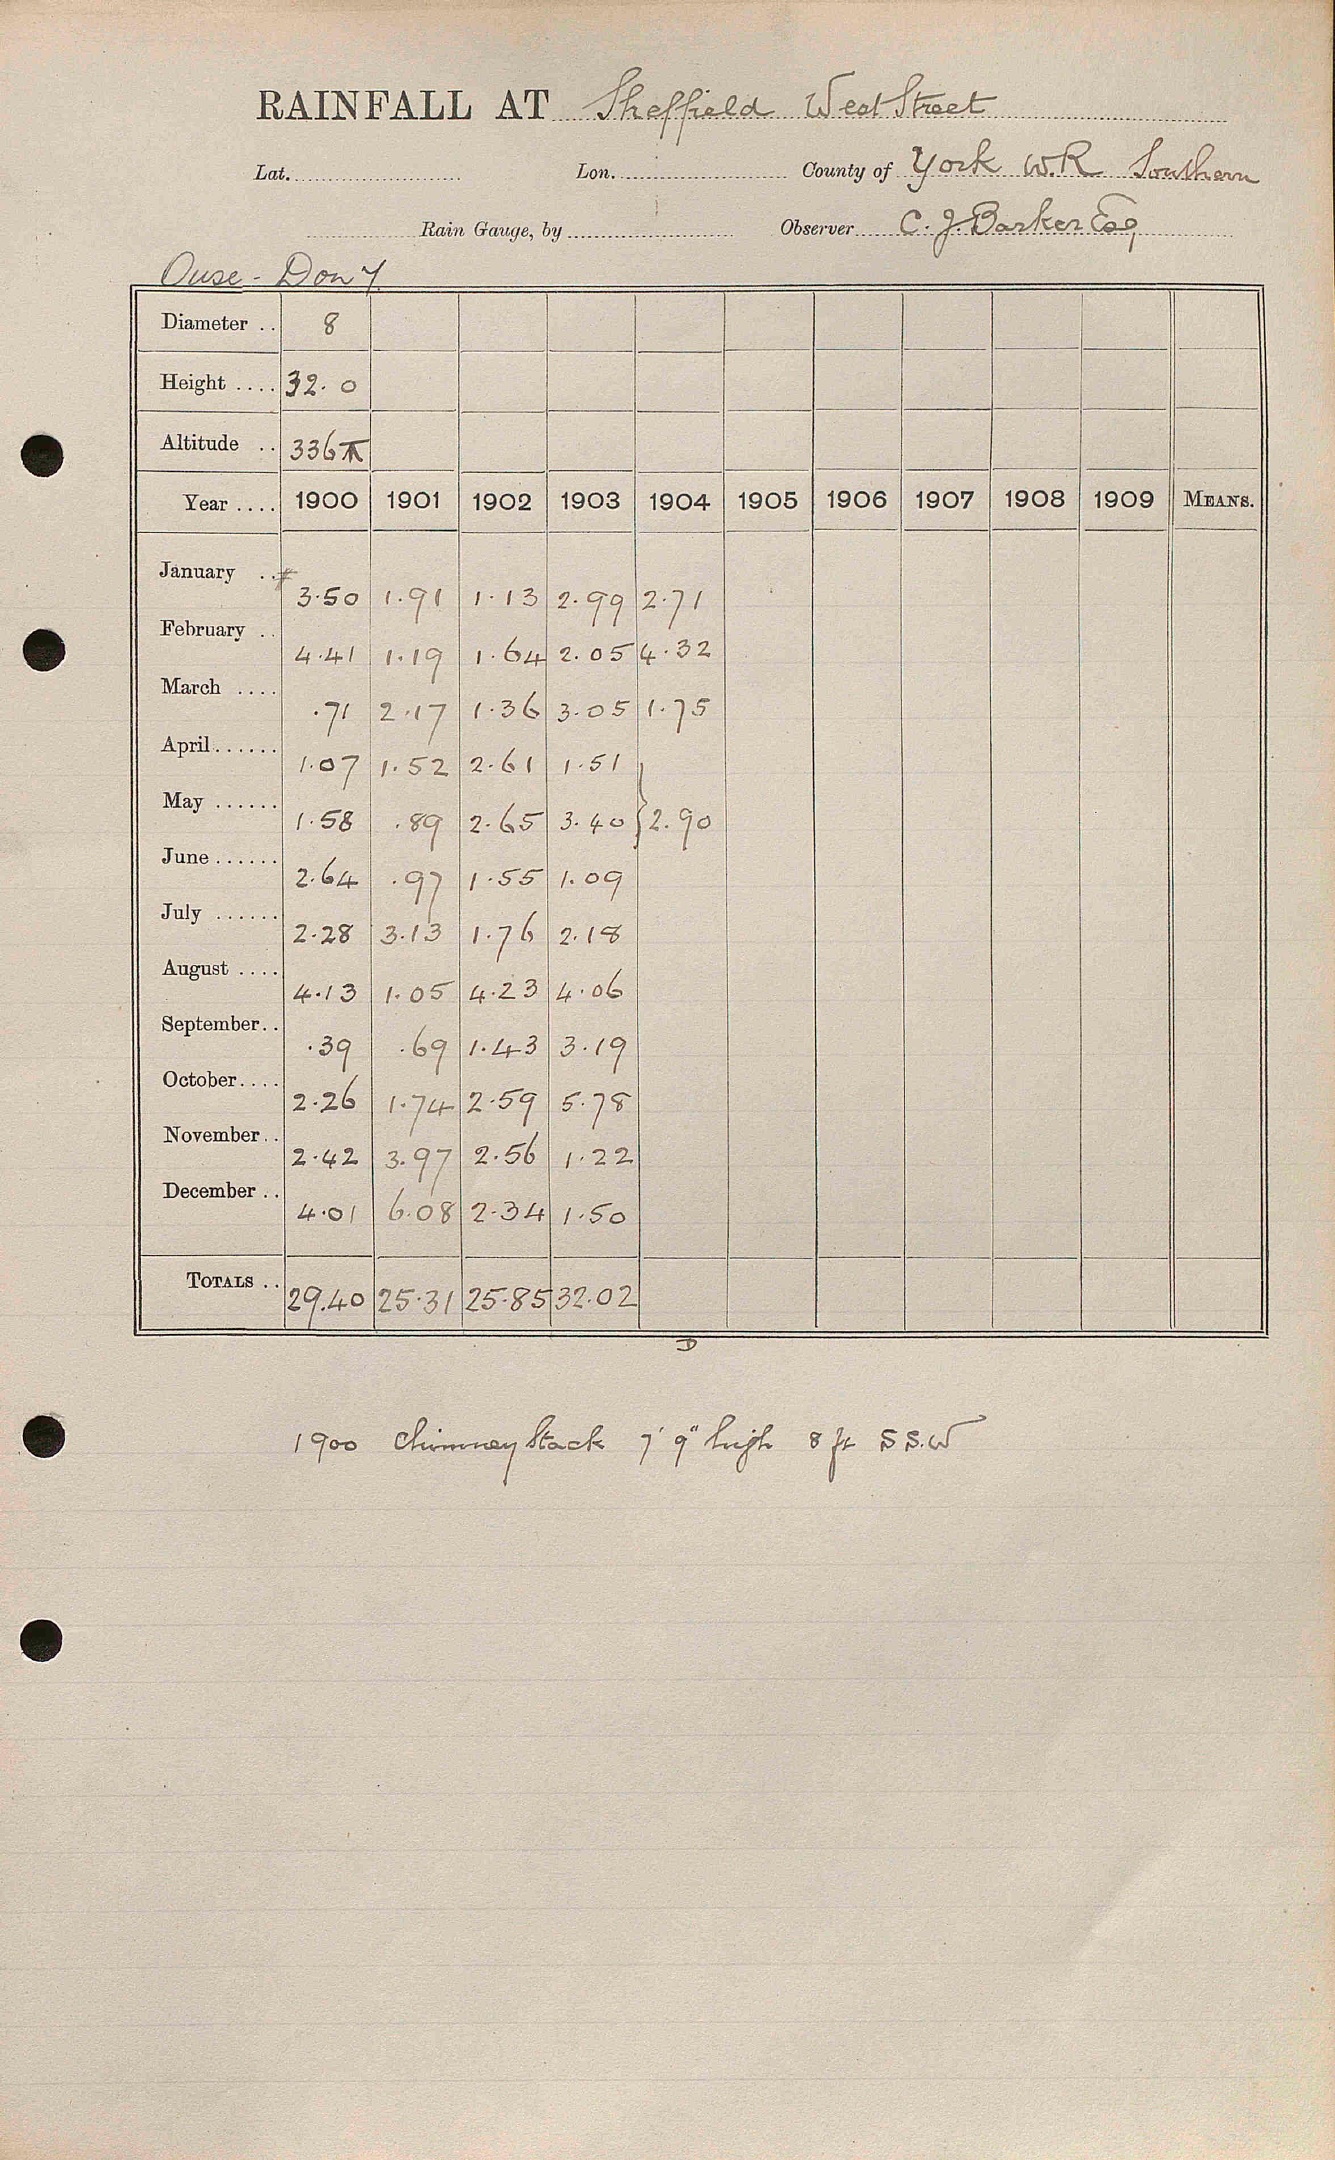 RAINFALL AT Sheffield West Street
Lat. Lon. County of York W.R Southern
Rain Gauge, by Observer C. J. Barker Esq
Ouse - Don 7
Diameter .. 8
Height .... 32. 0
Altitude .. 336
Year .... 1900 1901 1902 1903 1904 1905 1906 1907 1908 1909 MEANS.
January .. 3.50 1.91 1.13 2.99 2.71
February .. 4.41 1.19 1.64 2.05 4.32
March .... .71 2.17 1.36 3.05 1.75
April ...... 1.07 1.52 2.61 1.51
May ...... 1.58 .89 2.65 3.40 } 2.90
June ...... 2.64 .97 1.55 1.09
July ...... 2.28 3.13 1.76 2.18
August .... 4.13 1.05 4.23 4.06
September.. .39 .69 1.43 3.19
October.... 2.26 1.74 2.59 5.78
November.. 2.42 3.97 2.56 1.22
December .. 4.01 6.08 2.34 1.50
TOTALS .. 29.40 25.31 25.85 32.02
D
1900 Chimney Stack 7' 9" high 8 ft S S.W